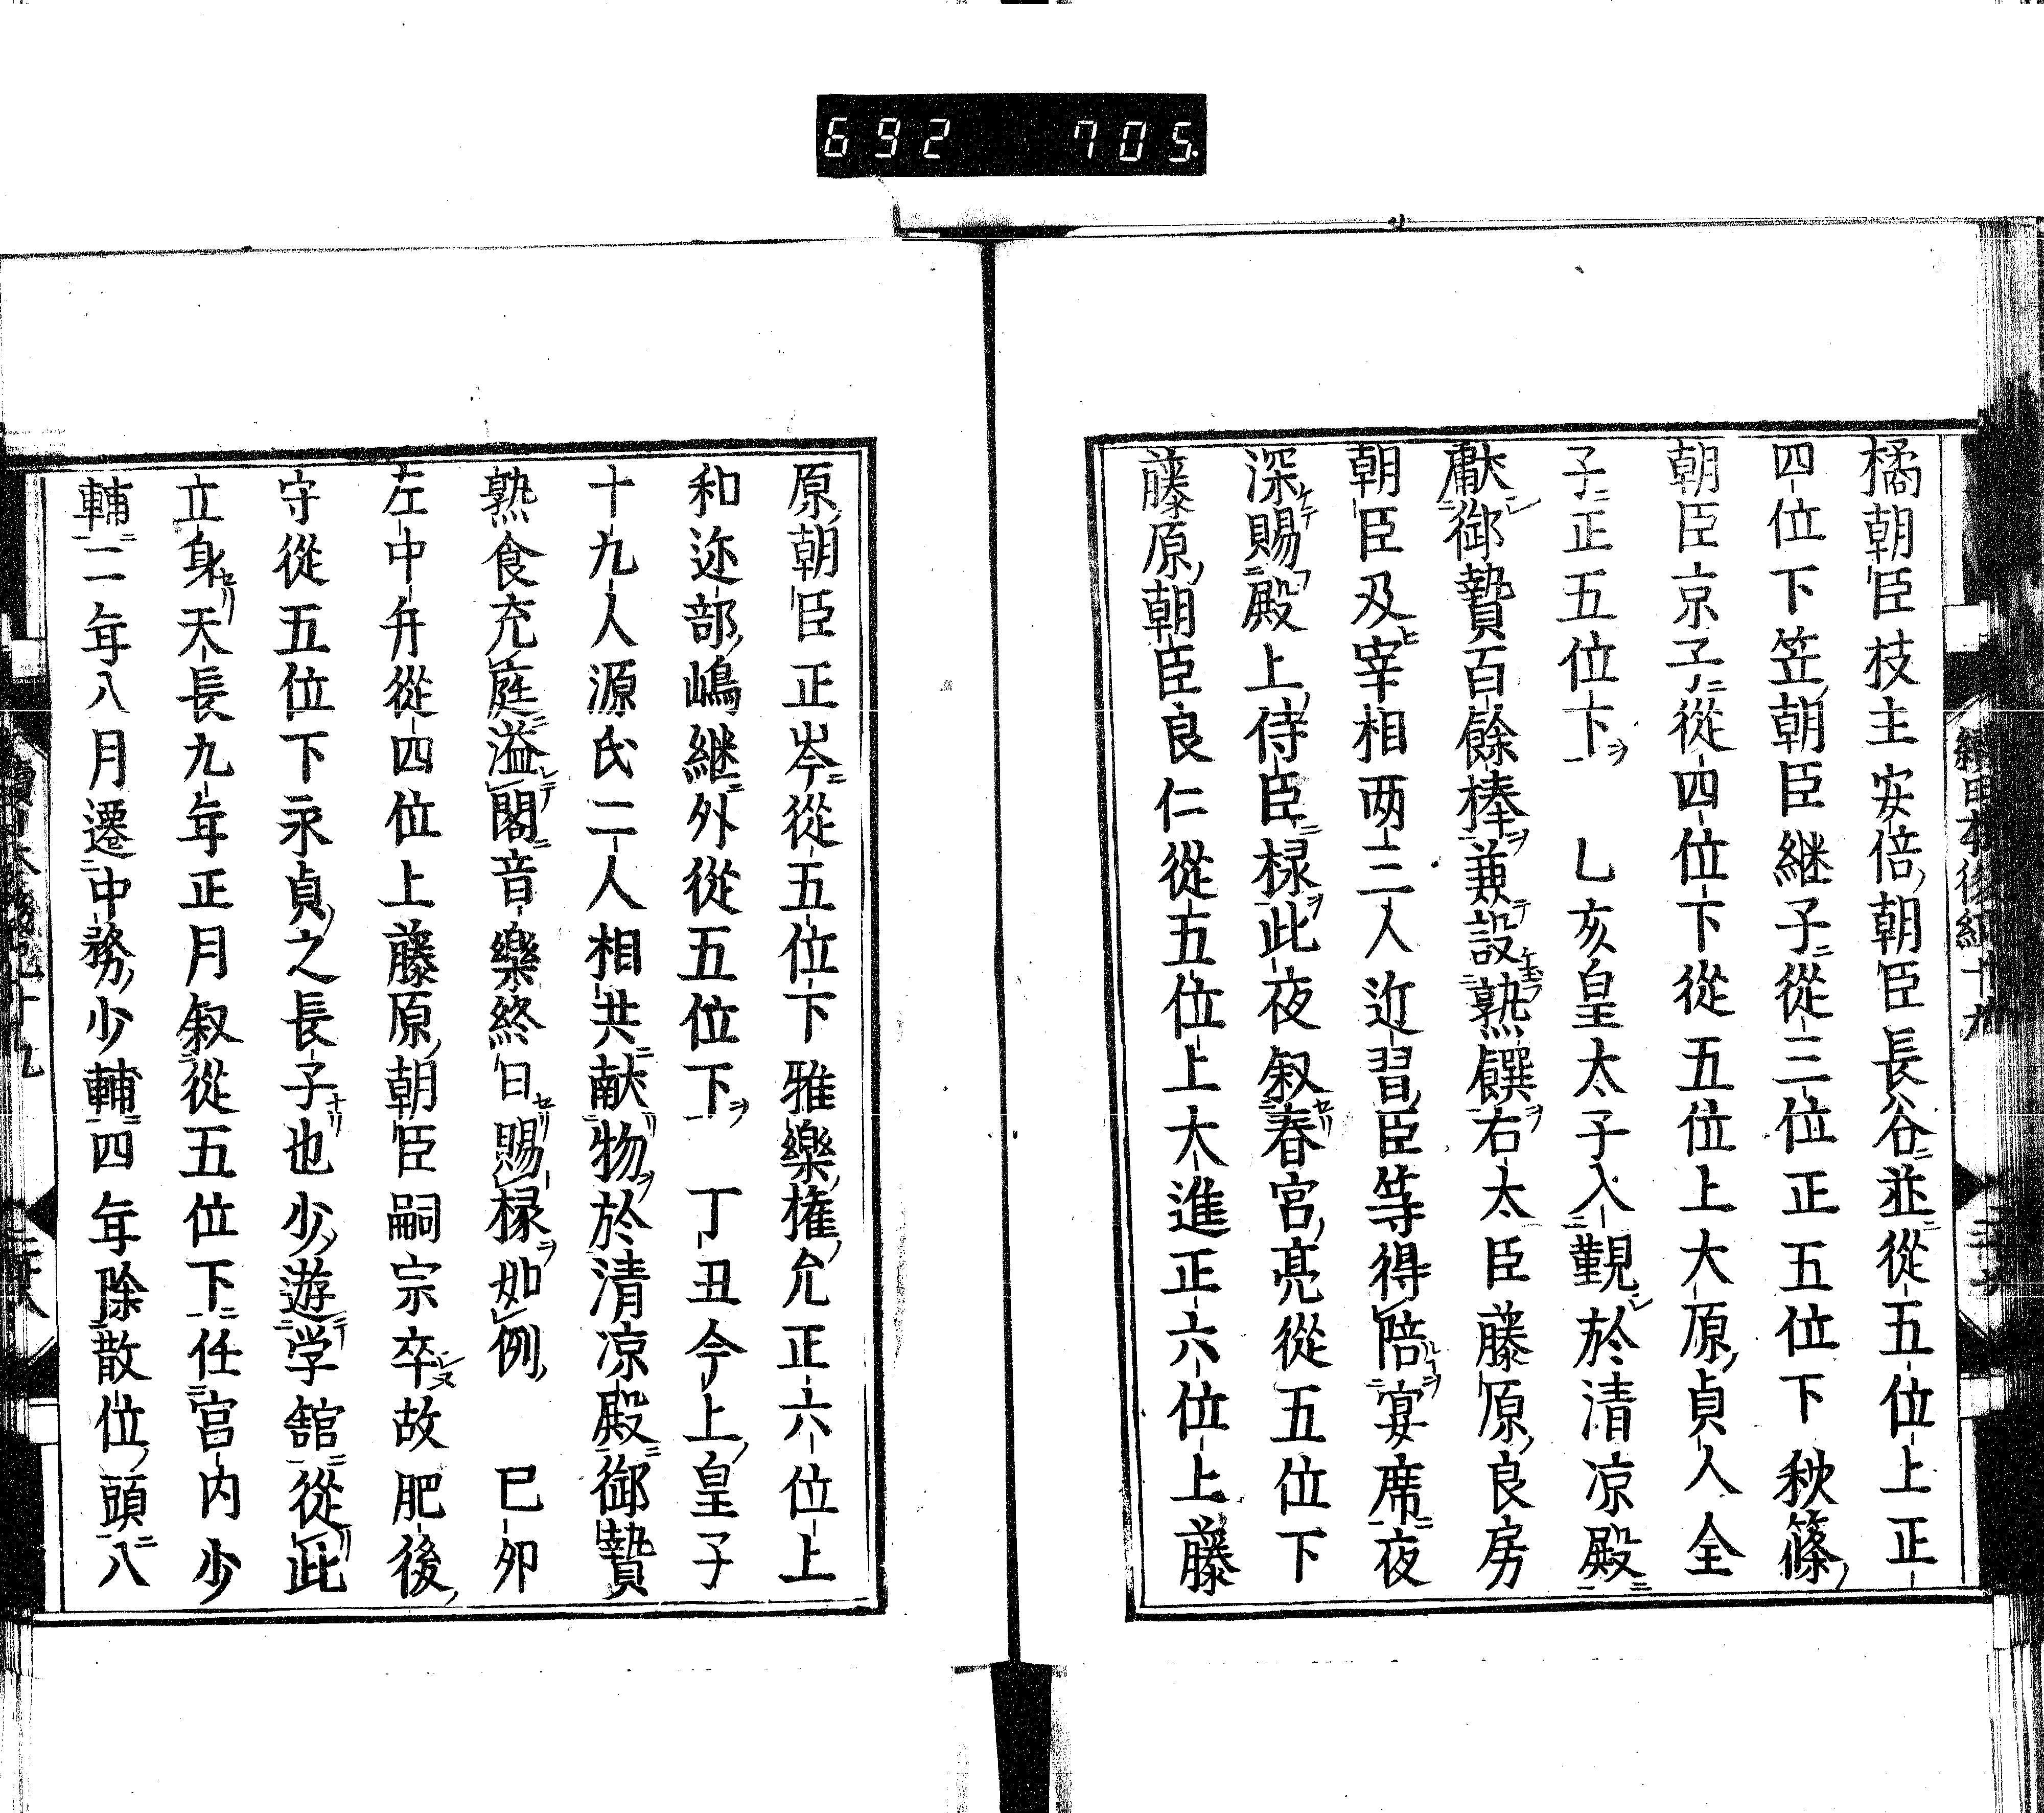 692 705
橘朝臣枝主安倍朝臣長谷並從五位上正
四位下笠朝臣継子從三位正五位下秋篠
朝臣京子從四位下從五位上大原貞人全
子正五位下 乙亥皇太子入覲於清凉殿
獻御贄百餘捧兼設熟饌右大臣藤原良房
朝臣及宰相両三人近習臣等得陪宴席夜
深賜殿上侍臣禄此夜叙春宮亮從五位下
藤原朝臣良仁從五位上大進正六位上藤
原朝臣正岑從五位下雅樂權允正六位上
和迩部嶋継外從五位下 丁丑今上皇子
十九人源氏二人相共献物於清凉殿御贄
熟食充庭溢閣音樂終日賜禄如例 已夘
左中弁從四位上藤原朝臣嗣宗卒故肥後
守從五位下永貞之長子也少遊学舘從此
立身天長九年正月叙從五位下任宮内少
輔二年八月遷中務少輔四年除散位頭八